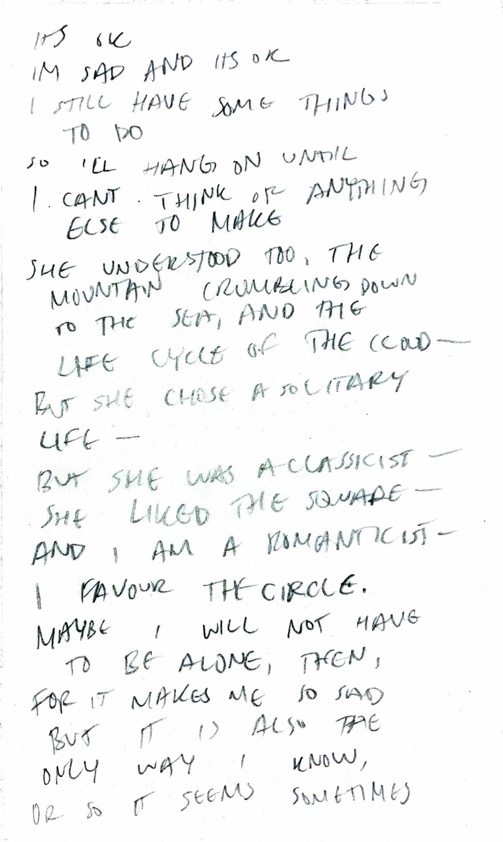 ITS OK
IM SAD AND ITS OK
I STILL HAVE SOME THINGS
TO DO
SO I'LL HANG ON UNTIL
I CANT THINK OF ANYTHING
ELSE TO MAKE
SHE UNDERSTOOD TOO, THE
MOUNTAIN CRUMBLING DOWN
TO THE SEA, AND THE
LIFE CYCLE OF THE CLOUD—
BUT SHE CHOSE A SOLITARY
LIFE —
BUT SHE WAS A CLASSICIST —
SHE LIKED THE SQUARE —
AND I AM A ROMANTICIST—
I FAVOUR THE CIRCLE.
MAYBE I WILL NOT HAVE
TO BE ALONE, THEN,
FOR IT MAKES ME SO SAD
BUT IT IS ALSO THE
ONLY WAY I KNOW,
OR SO IT SEEMS SOMETIMES